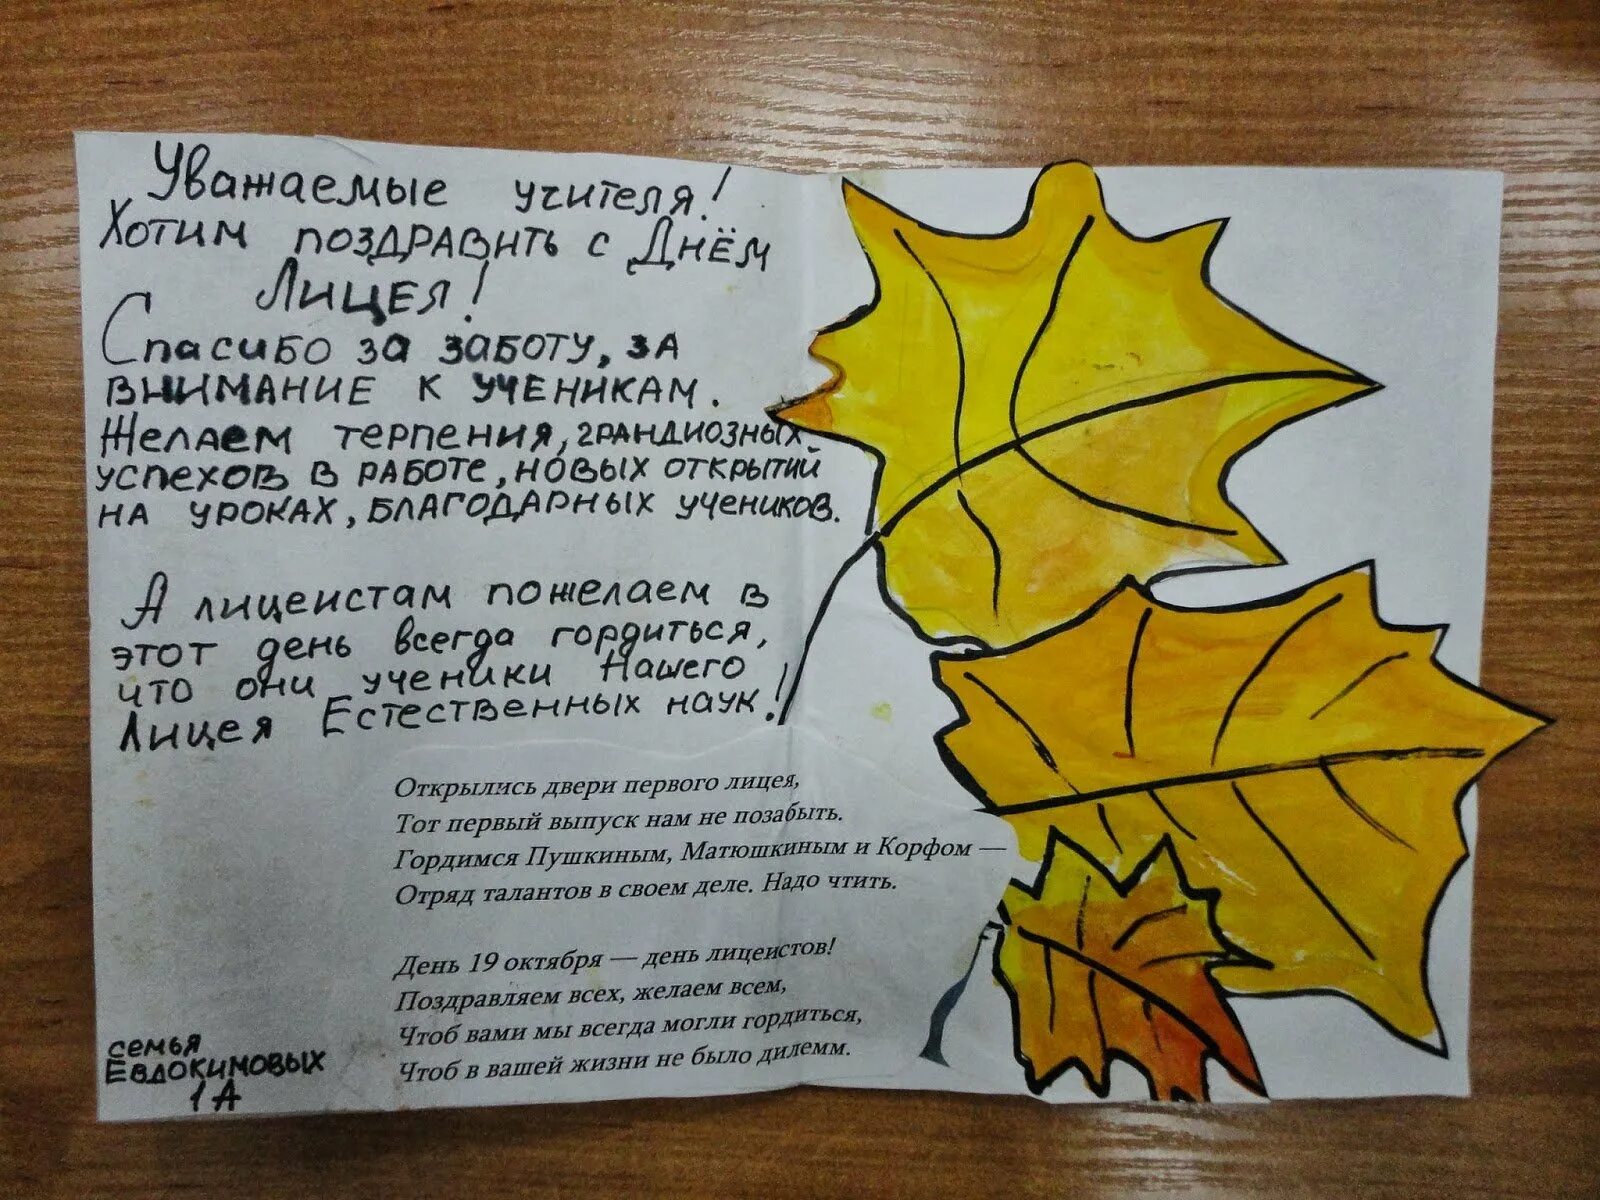 Уважаемые учителя!
Хотим поздравить с Днём
Лицея!
Спасибо за заботу, за
внимание к ученикам.
Желаем терпения, грандиозных
успехов в работе, новых открытий
на уроках, благодарных учеников.
А лицеистам пожелаем в
этот день всегда гордиться,
что они ученики Нашего
Лицея Естественных наук!
Открылись двери первого лицея,
Тот первый выпуск нам не позабыть.
Гордимся Пушкиным, Матюшкиным и Корфом —
Отряд талантов в своем деле. Надо чтить.
День 19 октября — день лицеистов!
Поздравляем всех, желаем всем,
Чтоб вами мы всегда могли гордиться,
Чтоб в вашей жизни не было дилемм.
семья
Евдокимовых
1А